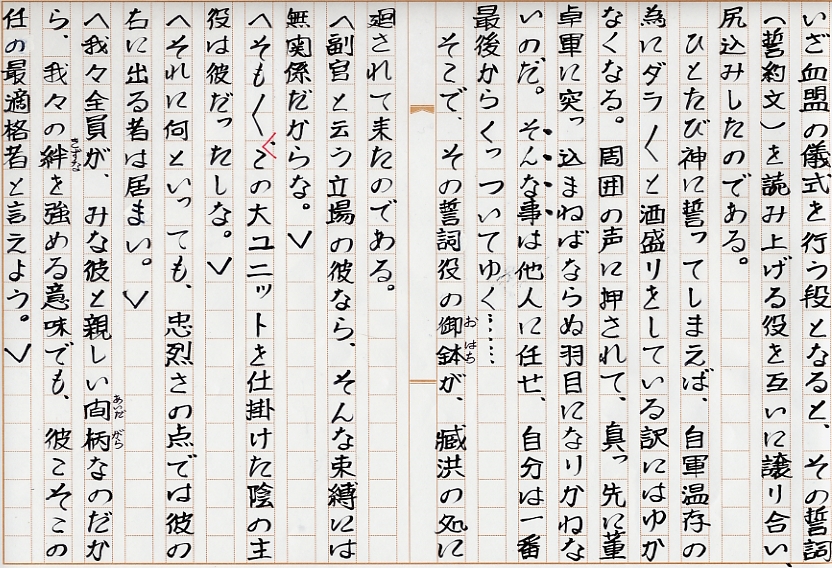 いざ血盟の儀式を行う段となると、その誓詞
（誓約文）を読み上げる役を互いに譲り合い、
尻込みしたのである。
ひとたび神に誓ってしまえば、自軍温存の
為にダラ〱と酒盛りをしている訳にはゆか
なくなる。周囲の声に押されて、真っ先に董
卓軍に突っ込まねばならぬ羽目になりかねな
いのだ。そんな事は他人に任せ、自分は一番
最後からくっついてゆく……
そこで、その誓詞役の御鉢が、臧洪の処に
おはち
廻されて来たのである。
〈副官と云う立場の彼なら、そんな束縛には
無関係だからな。〉
〈そも〱、この大ユニットを仕掛けた陰の主
役は彼だったしな。〉
〈それに何といっても、忠烈さの点では彼の
右に出る者は居まい。〉
〈我々全員が、みな彼と親しい間柄なのだか
あいだがら
ら、我々の絆を強める意味でも、彼こそこの
きずな
任の最適格者と言えよう。〉